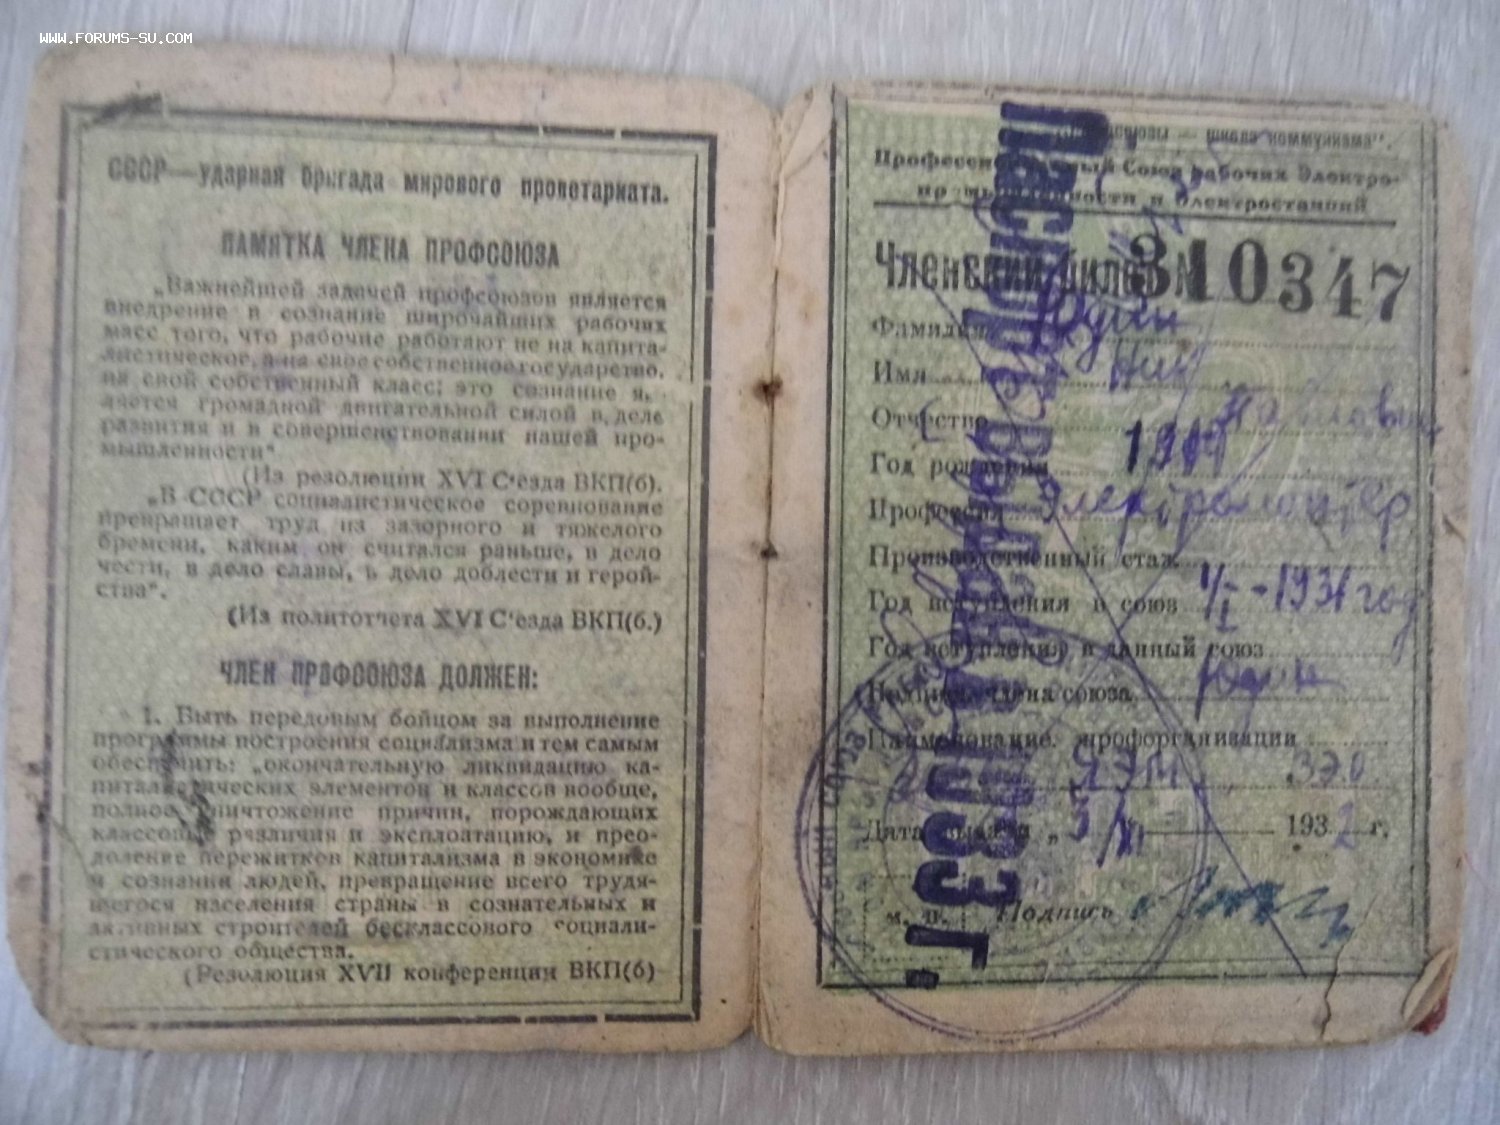 WWW.FORUMS-SU.COM
СССР—ударная бригада мирового пролетариата.
ПАМЯТКА ЧЛЕНА ПРОФСОЮЗА
„Важнейшей задачей профсоюзов является
внедрение в сознание широчайших рабочих
масс того, что рабочие работают не на капита-
листическое, а на свое собственное государство,
на свой собственный класс; это сознание я.
ляется громадной двигательной силой в деле
развития и в совершенствовании нашей про-
мышленности"
(Из резолюции XVI С'езда ВКП(б).
„В СССР социалистическое соревнование
превращает труд из зазорного и тяжелого
бремени, каким он считался раньше, в дело
чести, в дело славы, в дело доблести и герой-
ства".
(Из политотчета XVI С'езда ВКП(б.)
ЧЛЕН ПРОФСОЮЗА ДОЛЖЕН:
1. Быть передовым бойцом за выполнение
программы построения социализма и тем самым
обеспечить: „окончательную ликвидацию ка-
питалистических элементов и классов вообще,
полное уничтожение причин, порождающих
классовые различия и эксплоатацию, и прео-
доление пережитков капитализма в экономике
и сознании людей, превращение всего трудя-
щегося населения страны в сознательных и
активных строителей бесклассового социали-
стического общества.
(Резолюция XVII конференции ВКП(б)
„Профсоюзы — школа коммунизма".
Профессиональный Союз рабочих Электро-
промышленности и Электростанций
Членский билет № 310347
Фамилия Юдин
Имя Ник
Отчество Павлович
Год рождения 1911
Профессия Электромонтер
Производственный стаж
Год вступления в союз 1/I-1931 год
Год вступления в данный союз
Подпись члена союза Юдин
Наименование профорганизации
ЯЭМ ЗЭО
Дата выдачи „3/XI 1932 г.
м. п. Подпись